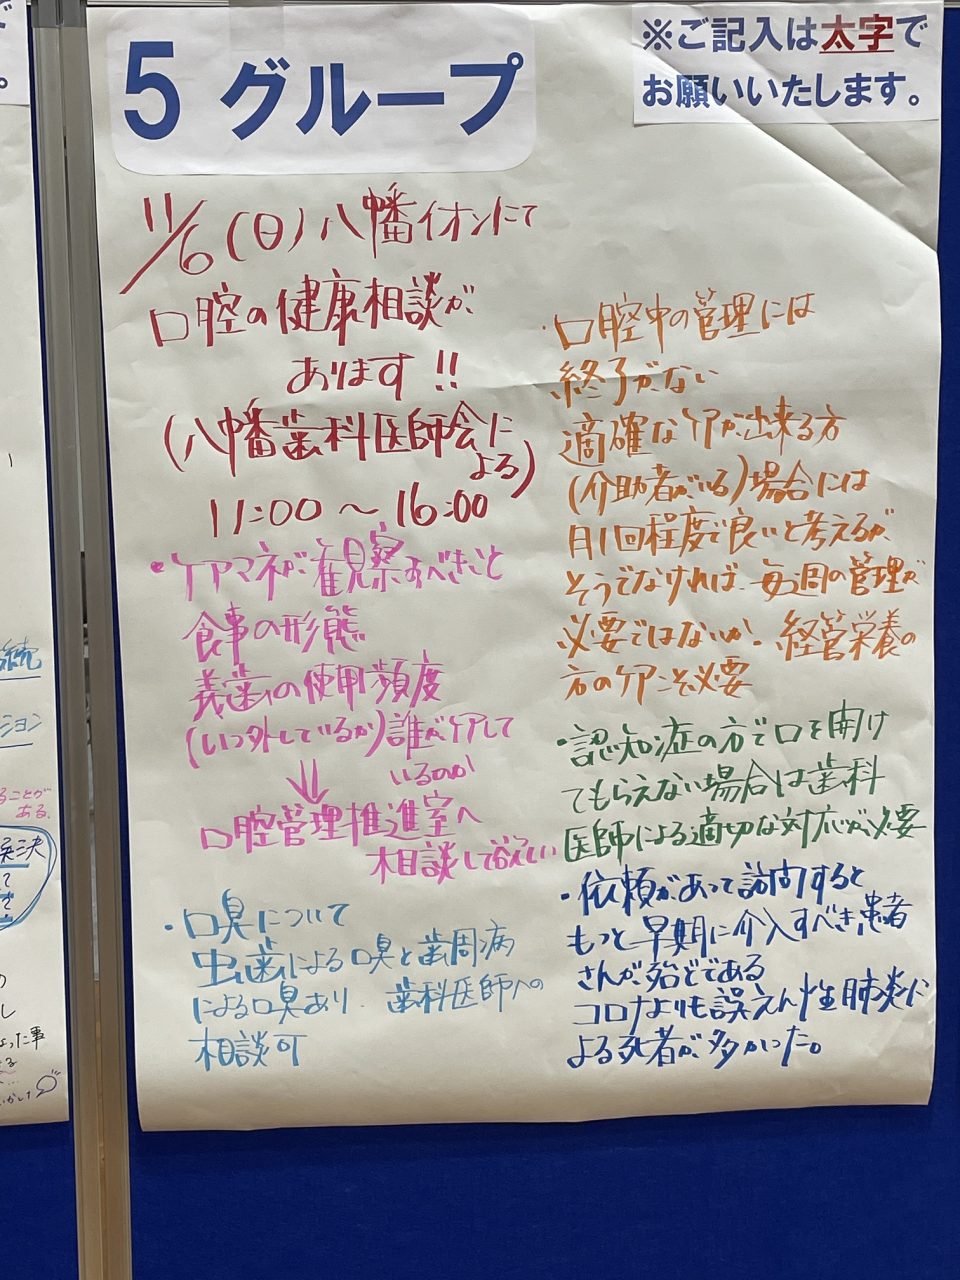 5 グループ
※ご記入は太字で
お願いいたします。
11/6(日)八幡イオンにて
口腔の健康相談が
あります!!
(八幡歯科医師会に
よる)
11:00～16:00
・ケアマネが観察すべきこと
食事の形態
義歯の使用頻度
(いつ外しているか)誰がケアして
いるのか
⇓
口腔管理推進室へ
相談して欲しい
・口臭について
虫歯による口臭と歯周病
による口臭あり. 歯科医師への
相談可
・口腔中の管理には
終了がない
適確なケアが出来る方
(介助者がいる)場合には
月1回程度で良いと考えるが、
そうでなければ、毎週の管理が
必要ではないか. 経管栄養の
方のケアこそ必要
・認知症の方で口を開け
てもらえない場合は歯科
医師による適切な対応が必要
・依頼があって訪問すると
もっと早期に介入すべき患者
さんが殆どである
コロナよりも誤えん性肺炎に
よる死者が多かった。
続
ション
ることが
ある.
解決
て
で
の
し
った事